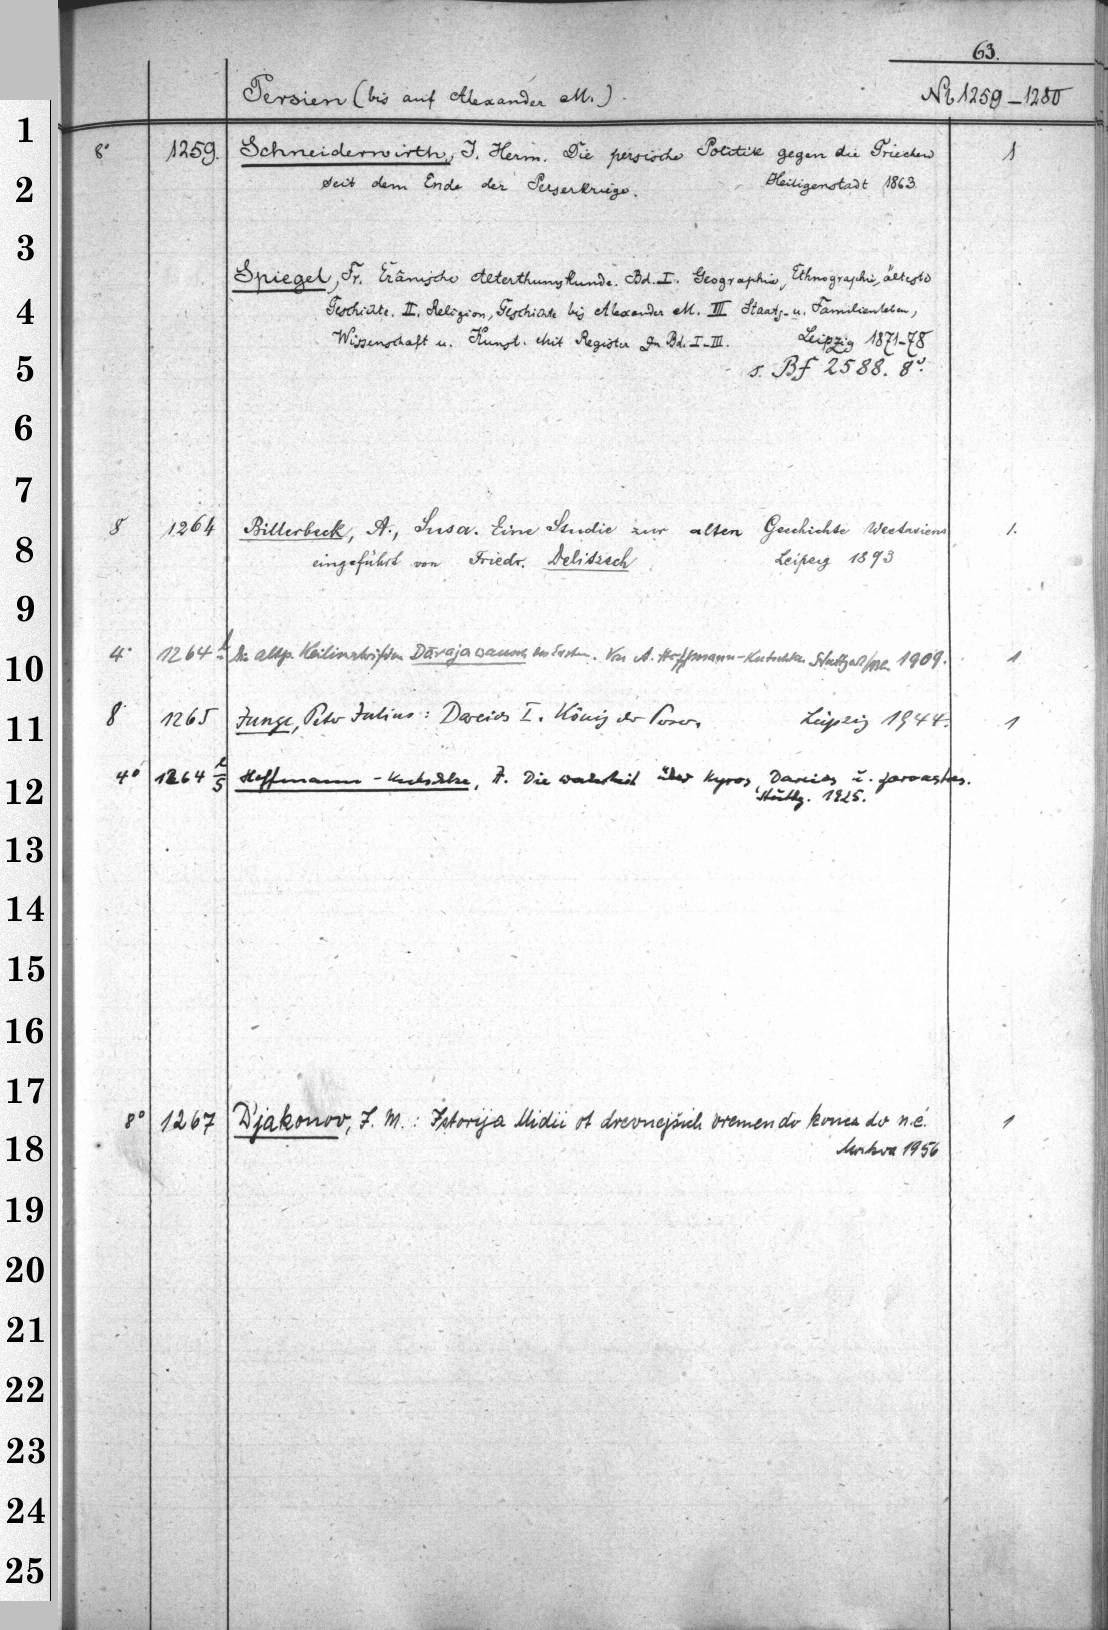 63.
Persien (bis auf Alexander M.). Nr 1259–1280
1
8° 1259. Schneiderwirth, J. Herm. Die persische Politik gegen die Griechen 1
2
seit dem Ende der Perserkriege. Heiligenstadt 1863
3
Spiegel, Fr. Erânische Alterthumskunde. Bd. I. Geographie, Ethnographie, älteste
4
Geschichte. II. Religion, Geschichte bis Alexander M. III Staats- u. Familienleben,
Wissenschaft u. Kunst. Mit Register zu Bd. I–III. Leipzig 1871–78
5
s. Bf 2588. 8°.
6
7
8 1264 Billerbeck, A., Susa. Eine Studie zur alten Geschichte Westasiens 1.
8
eingeführt von Friedr. Delitzsch Leipzig 1893
9
4° 1264 Die altp. Keilinschriften Dārajawausch des Ersten. Von A. Hoffmann-Kutschke. Stuttgart 1909. 1
10
8 1265 Junge, Peter Julius: Dareios I. König der Perser. Leipzig 1944. 1
11
4° 1264 5 Hoffmann-Kutschke, A. Die Wahrheit über Kyros, Dareios u. Zaroaster.
12
Stuttg. 1925.
13
14
15
16
17
8° 1267 D'jakonov, I. M.: Istorija Midii ot drevnejšich vremen do konca do n.é. 1
18
Moskva 1956
19
20
21
22
23
24
25